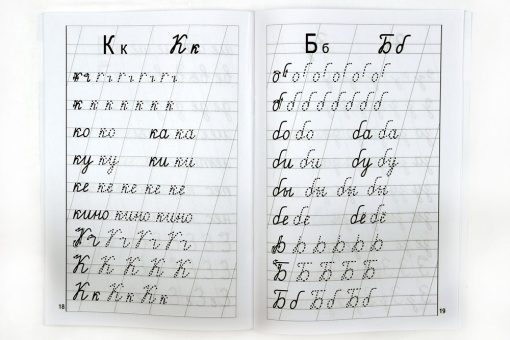 К к К к
к к к к к к
ко ко ка ка
ку ку ки ки
ке ке ке ке ке
кино кино кино
К К К К К
К к К к К к
18
Б б Б б
б б б б б б б
бо бо ба ба
би би бу бу
бы бы бы бы
бе бе бе бе
Б Б Б Б Б
Б б Б б Б б
19